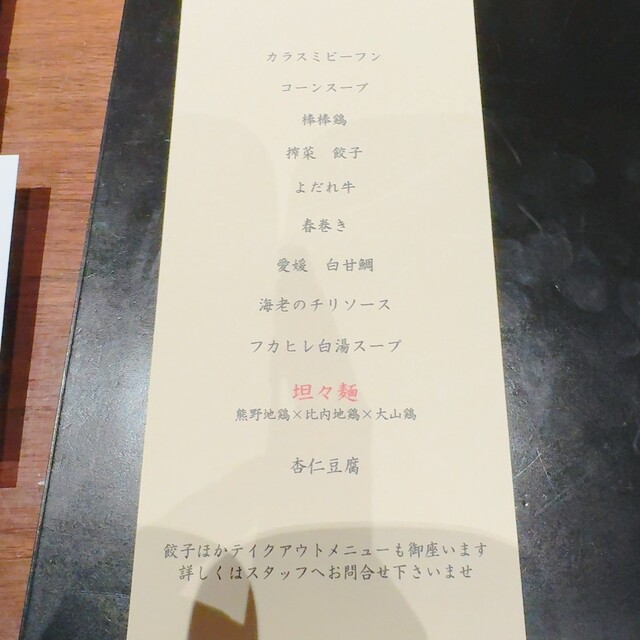 カラスミビーフン
コーンスープ
棒棒鶏
搾菜　餃子
よだれ牛
春巻き
愛媛　白甘鯛
海老のチリソース
フカヒレ白湯スープ
坦々麺
熊野地鶏×比内地鶏×大山鶏
杏仁豆腐
餃子ほかテイクアウトメニューも御座います
詳しくはスタッフへお問合せ下さいませ